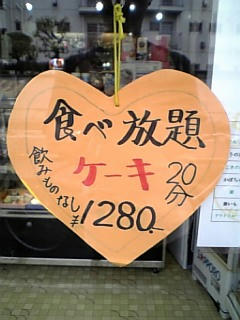 食べ放題
ケーキ
20分
飲みものなし
¥1280.